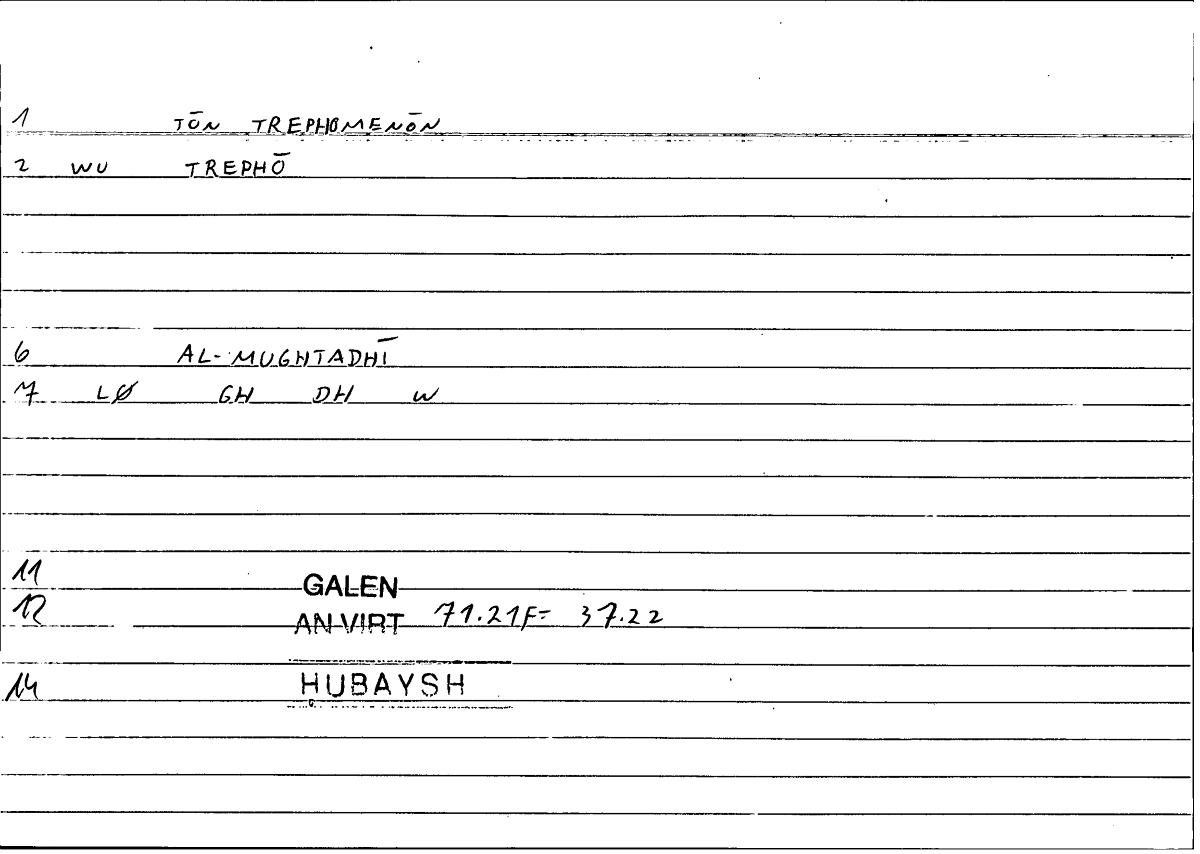 1 TŌN TREPHOMENŌN
2 WU TREPHŌ
6 AL-MUGHTADHĪ
7 LØ GH DH W
11 GALEN
12 AN VIRT 71.21F= 37.22
14 ḤUBAYSH